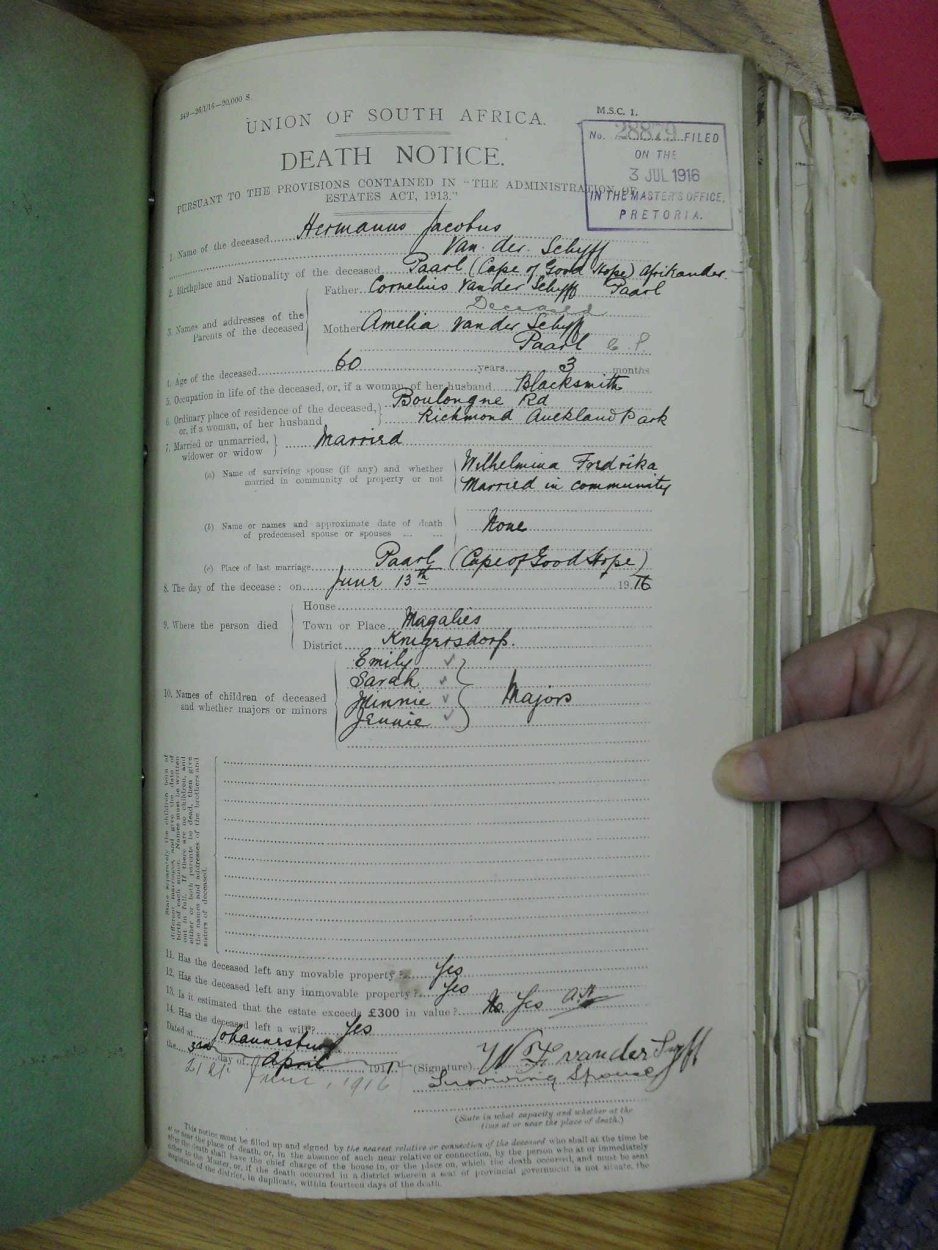 349—26/1/16—20,000 S.
M.S.C. 1.
UNION OF SOUTH AFRICA.
DEATH NOTICE.
No. 28879 FILED
ON THE
3 JUL 1916
IN THE MASTER'S OFFICE,
PRETORIA.
PURSUANT TO THE PROVISIONS CONTAINED IN "THE ADMINISTRATION OF
ESTATES ACT, 1913."
1. Name of the deceased Hermanus Jacobus
Van der Schyff
2. Birthplace and Nationality of the deceased Paarl (Cape of Good Hope) Afrikander
3. Names and addresses of the Parents of the deceased
Father Cornelius Van der Schyff Paarl
Deceased
Mother Amelia Van der Schyff
Paarl C P
4. Age of the deceased 60 years 3 months
5. Occupation in life of the deceased, or, if a woman, of her husband Blacksmith
6. Ordinary place of residence of the deceased, or, if a woman, of her husband
Boulongne Rd
Richmond Auckland Park
7. Married or unmarried, widower or widow Married
(a) Name of surviving spouse (if any) and whether married in community of property or not
Wilhelmina Fredrika
Married in community
(b) Name or names and approximate date of death of predeceased spouse or spouses ... ... None
(c) Place of last marriage Paarl (Cape of Good Hope)
8. The day of the decease: on June 13th 1916
9. Where the person died
House
Town or Place Magalies
District Krugersdorp.
10. Names of children of deceased and whether majors or minors
Emily ✓
Sarah ✓
Minnie ✓ Majors
Jennie ✓
State separately the children born of
different marriages, and give the date of
birth of each minor. Names must be written
out in full. If there are no children, and
either or both parents be dead, then give
the names and addresses of the brothers and
sisters of deceased.
11. Has the deceased left any movable property? Yes
12. Has the deceased left any immovable property? Yes
13. Is it estimated that the estate exceeds £300 in value? No Yes
14. Has the deceased left a will? Yes
Dated at Johannesburg
the 3rd day of April 191
21st June, 1916
(Signature) W F van der Schyff
Surviving Spouse
(State in what capacity and whether at the
time at or near the place of death.)
This notice must be filled up and signed by the nearest relative or connection of the deceased who shall at the time be
at or near the place of death, or, in the absence of such near relative or connection, by the person who at or immediately
after the death shall have the chief charge of the house in, or the place on, which the death occurred, and must be sent
either to the Master, or, if the death occurred in a district wherein a seat of provincial government is not situate, the
magistrate of the district, in duplicate, within fourteen days of the death.